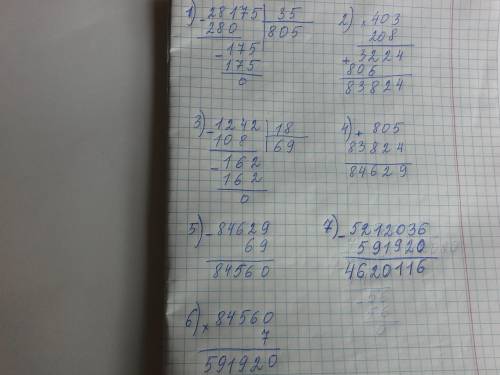 1) - 28175 | 35
280 | 805
- 175
175
0
2) × 403
208
+ 3224
806
83824
3) - 1242 | 18
108 | 69
- 162
162
0
4) + 805
83824
84629
5) - 84629
69
84560
6) × 84560
7
591920
7) - 5212036
591920
4620116